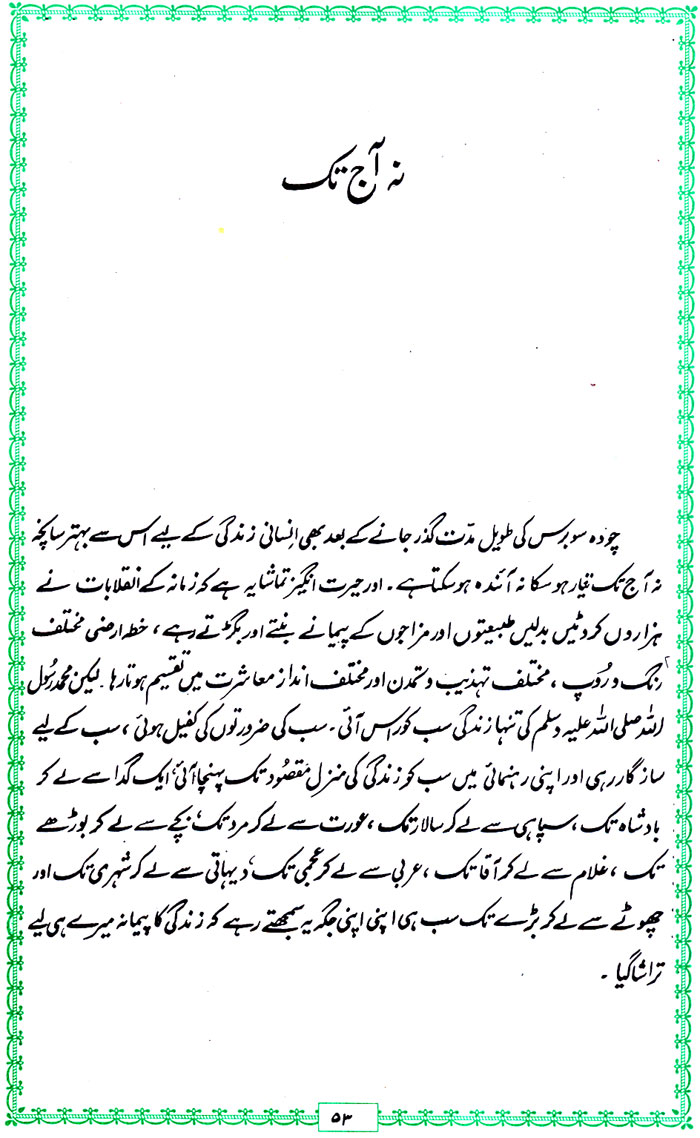 نہ آج تک
چودہ سو برس کی طویل مدّت گذر جانے کے بعد بھی اِنسانی زندگی کے لیے اس سے بہتر سانچہ
نہ آج تک تیار ہو سکا نہ آئندہ ہو سکتا ہے۔ اور حیرت انگیز تماشا یہ ہے کہ زمانہ کے انقلابات نے
ہزاروں کروٹیں بدلیں طبیعتوں اور مزاجوں کے پیمانے بنتے اور بگڑتے رہے، خطہ ارضی مختلف
رنگ و رُوپ، مختلف تہذیب و تمدن اور مختلف انداز معاشرت میں تقسیم ہوتا رہا۔ لیکن محمد رسُول
اللہ صلی اللہ علیہ وسلم کی تنہا زندگی سب کو راس آئی۔ سب کی ضرورتوں کی کفیل ہوئی، سب کے لیے
ساز گار رہی اور اپنی رہنمائی میں سب کو زندگی کی منزل مقصُود تک پہنچا آئی، ایک گدا سے لے کر
بادشاہ تک، سپاہی سے لے کر سالار تک، عورت سے لے کر مرد تک، بچے سے لے کر بوڑھے
تک، غلام سے لے کر آقا تک، عربی سے لے کر عجمی تک، دیہاتی سے لے کر شہری تک اور
چھوٹے سے لے کر بڑے تک سب ہی اپنی اپنی جگہ یہ سمجھتے رہے کہ زندگی کا پیمانہ میرے ہی لیے
تراشا گیا۔
۵۳